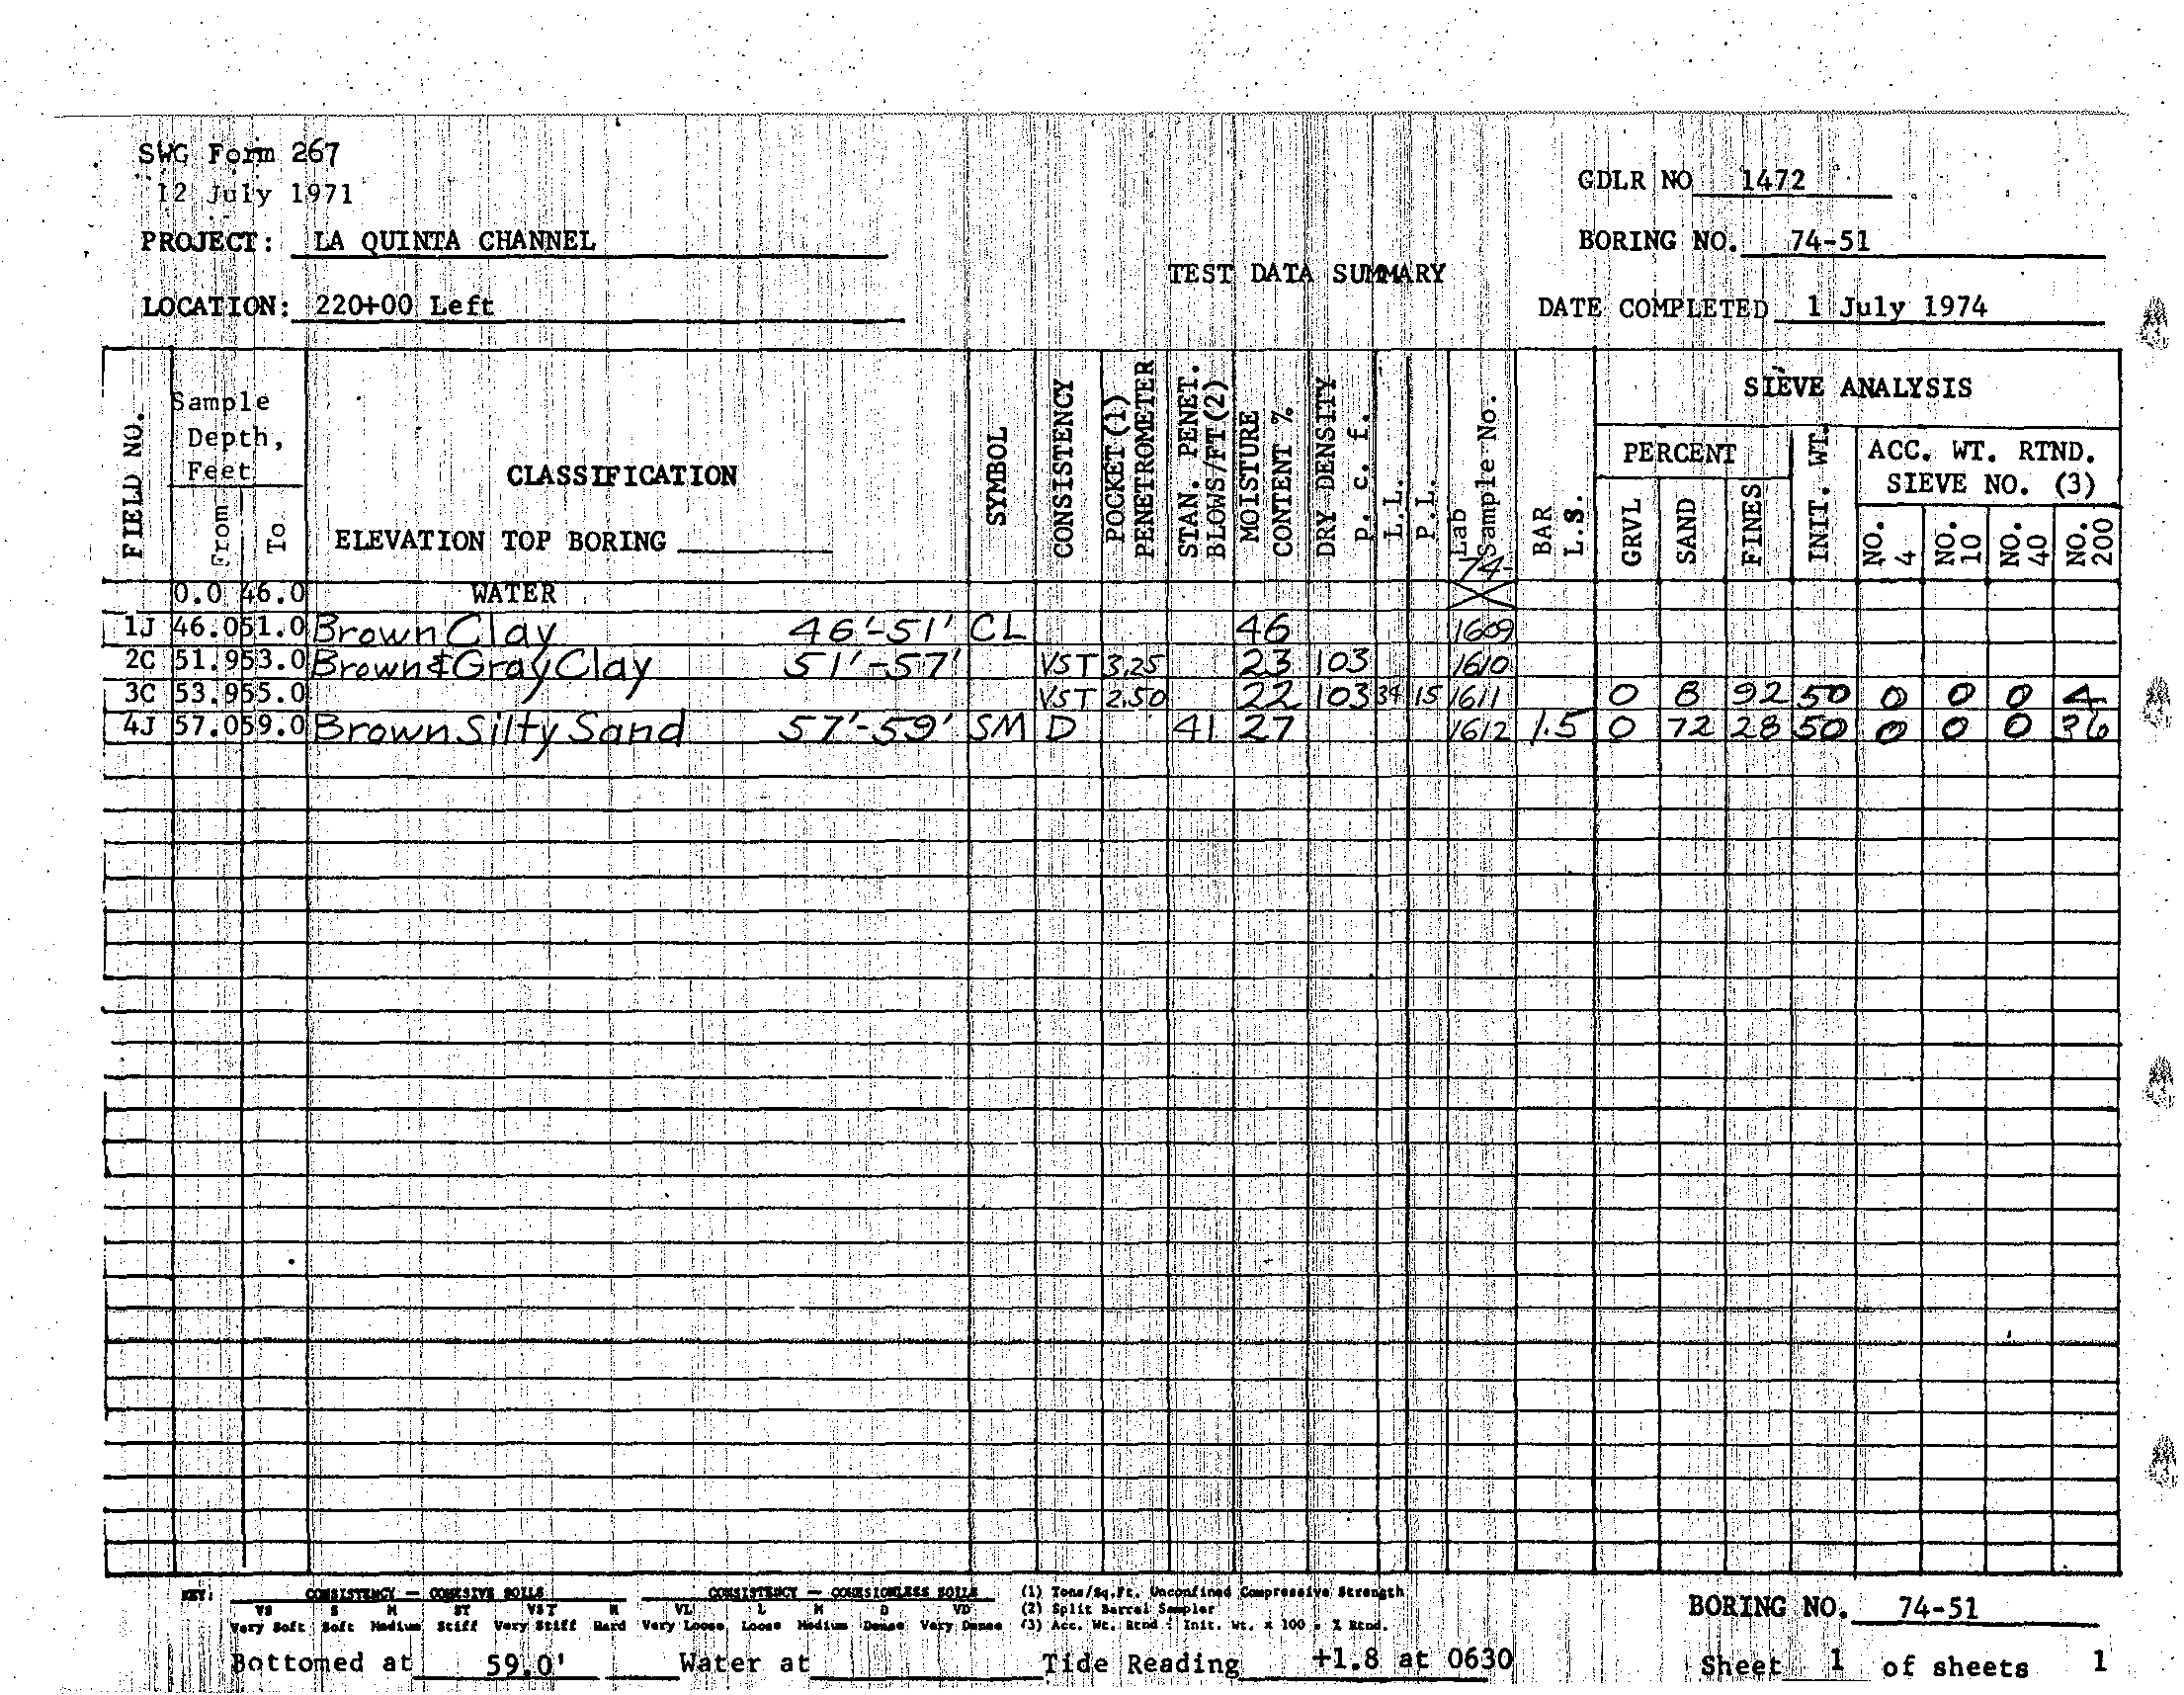 SWG Form 267
12 July 1971
GDLR NO 1472
PROJECT: LA QUINTA CHANNEL
BORING NO. 74-51
TEST DATA SUMMARY
LOCATION: 220+00 Left
DATE COMPLETED 1 July 1974
FIELD NO.
Sample Depth, Feet
From
To
CLASSIFICATION
ELEVATION TOP BORING
SYMBOL
CONSISTENCY
POCKET (1) PENETROMETER
STAN. PENET. BLOWS/FT (2)
MOISTURE CONTENT %
DRY DENSITY p. c. f.
L.L.
P.L.
Lab Sample No.
74-
BAR L.S.
SIEVE ANALYSIS
PERCENT
GRVL
SAND
FINES
INIT. WT.
ACC. WT. RTND.
SIEVE NO. (3)
NO. 4
NO. 10
NO. 40
NO. 200
0.0 46.0 WATER
1J 46.0 51.0 Brown Clay 46'-51' CL 46 1609
2C 51.9 53.0 Brown & Gray Clay 51'-57' VST 3.25 23 103 1610
3C 53.9 55.0 VST 2.50 22 103 34 15 1611 0 8 92 50 0 0 0 4
4J 57.0 59.0 Brown Silty Sand 57'-59' SM D 41 27 1612 1.5 0 72 28 50 0 0 0 36
KEY: CONSISTENCY — COHESIVE SOILS CONSISTENCY — COHESIONLESS SOILS (1) Tons/Sq.Ft. Unconfined Compressive Strength
VS S M ST VST H VL L M D VD (2) Split Barrel Sampler
Very Soft Soft Medium Stiff Very Stiff Hard Very Loose Loose Medium Dense Very Dense (3) Acc. Wt. Rtnd ÷ Init. Wt. x 100 = % Rtnd.
BORING NO. 74-51
Bottomed at 59.0' Water at Tide Reading +1.8 at 0630
Sheet 1 of sheets 1